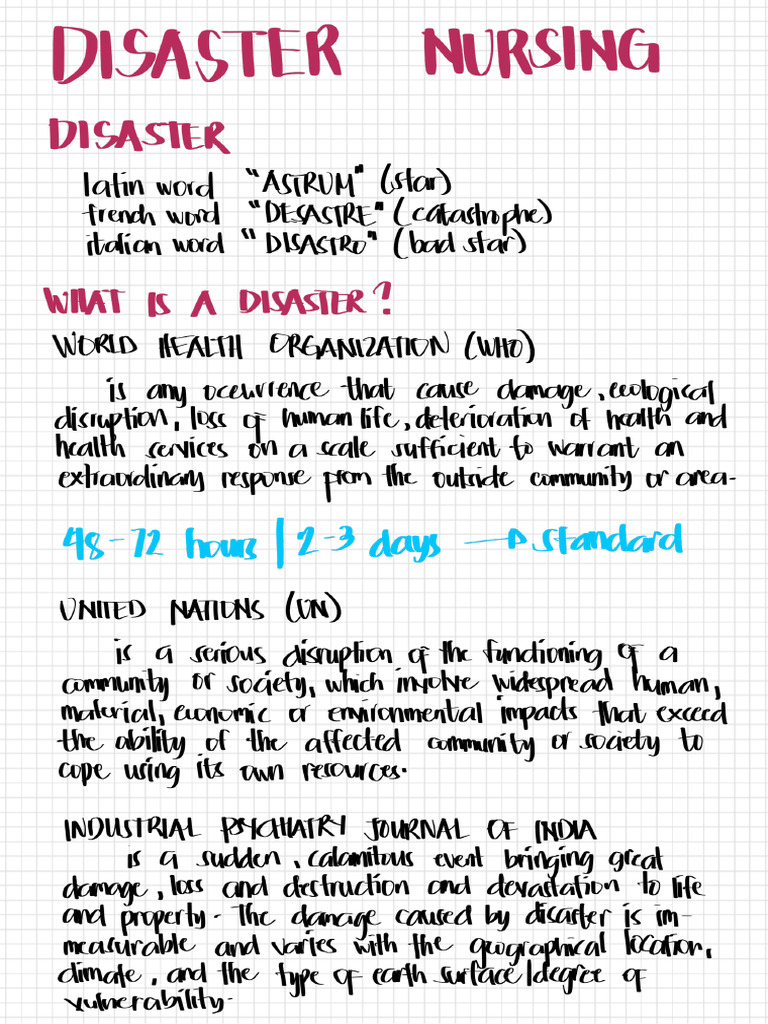 DISASTER NURSING
DISASTER
latin word "ASTRUM" (star)
french word "DESASTRE" (catastrophe)
italian word "DISASTRO" (bad star)
WHAT IS A DISASTER?
WORLD HEALTH ORGANIZATION (WHO)
is any occurrence that cause damage, ecological
disruption, loss of human life, deterioration of health and
health services on a scale sufficient to warrant an
extraordinary response from the outside community or area.
48-72 hours | 2-3 days → standard
UNITED NATIONS (UN)
is a serious disruption of the functioning of a
community or society, which involve widespread human,
material, economic or environmental impacts that exceed
the ability of the affected community or society to
cope using its own resources.
INDUSTRIAL PSYCHIATRY JOURNAL OF INDIA
is a sudden, calamitous event bringing great
damage, loss and destruction and devastation to life
and property. The damage caused by disaster is im-
measurable and varies with the geographical location,
climate, and the type of earth surface/degree of
vulnerability.